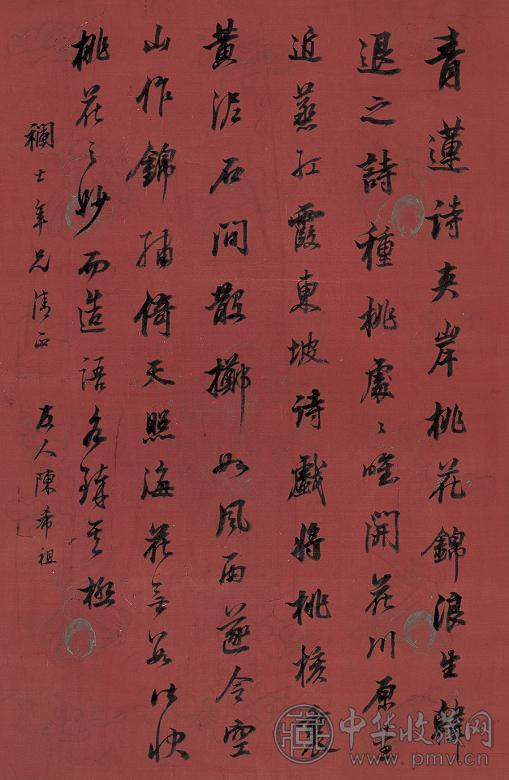 青蓮诗夹岸桃花錦浪生韓
退之詩種桃處〻唯開花川原
近蒸红霞東坡诗戲将桃核裹
黄泥石间散擲如风雨遂令空
山作錦绣倚天照海花無数皆快
桃花之妙而造语各臻其極
襴士年兄清正
友人陳希祖
中华收藏网
www.pmv.cn